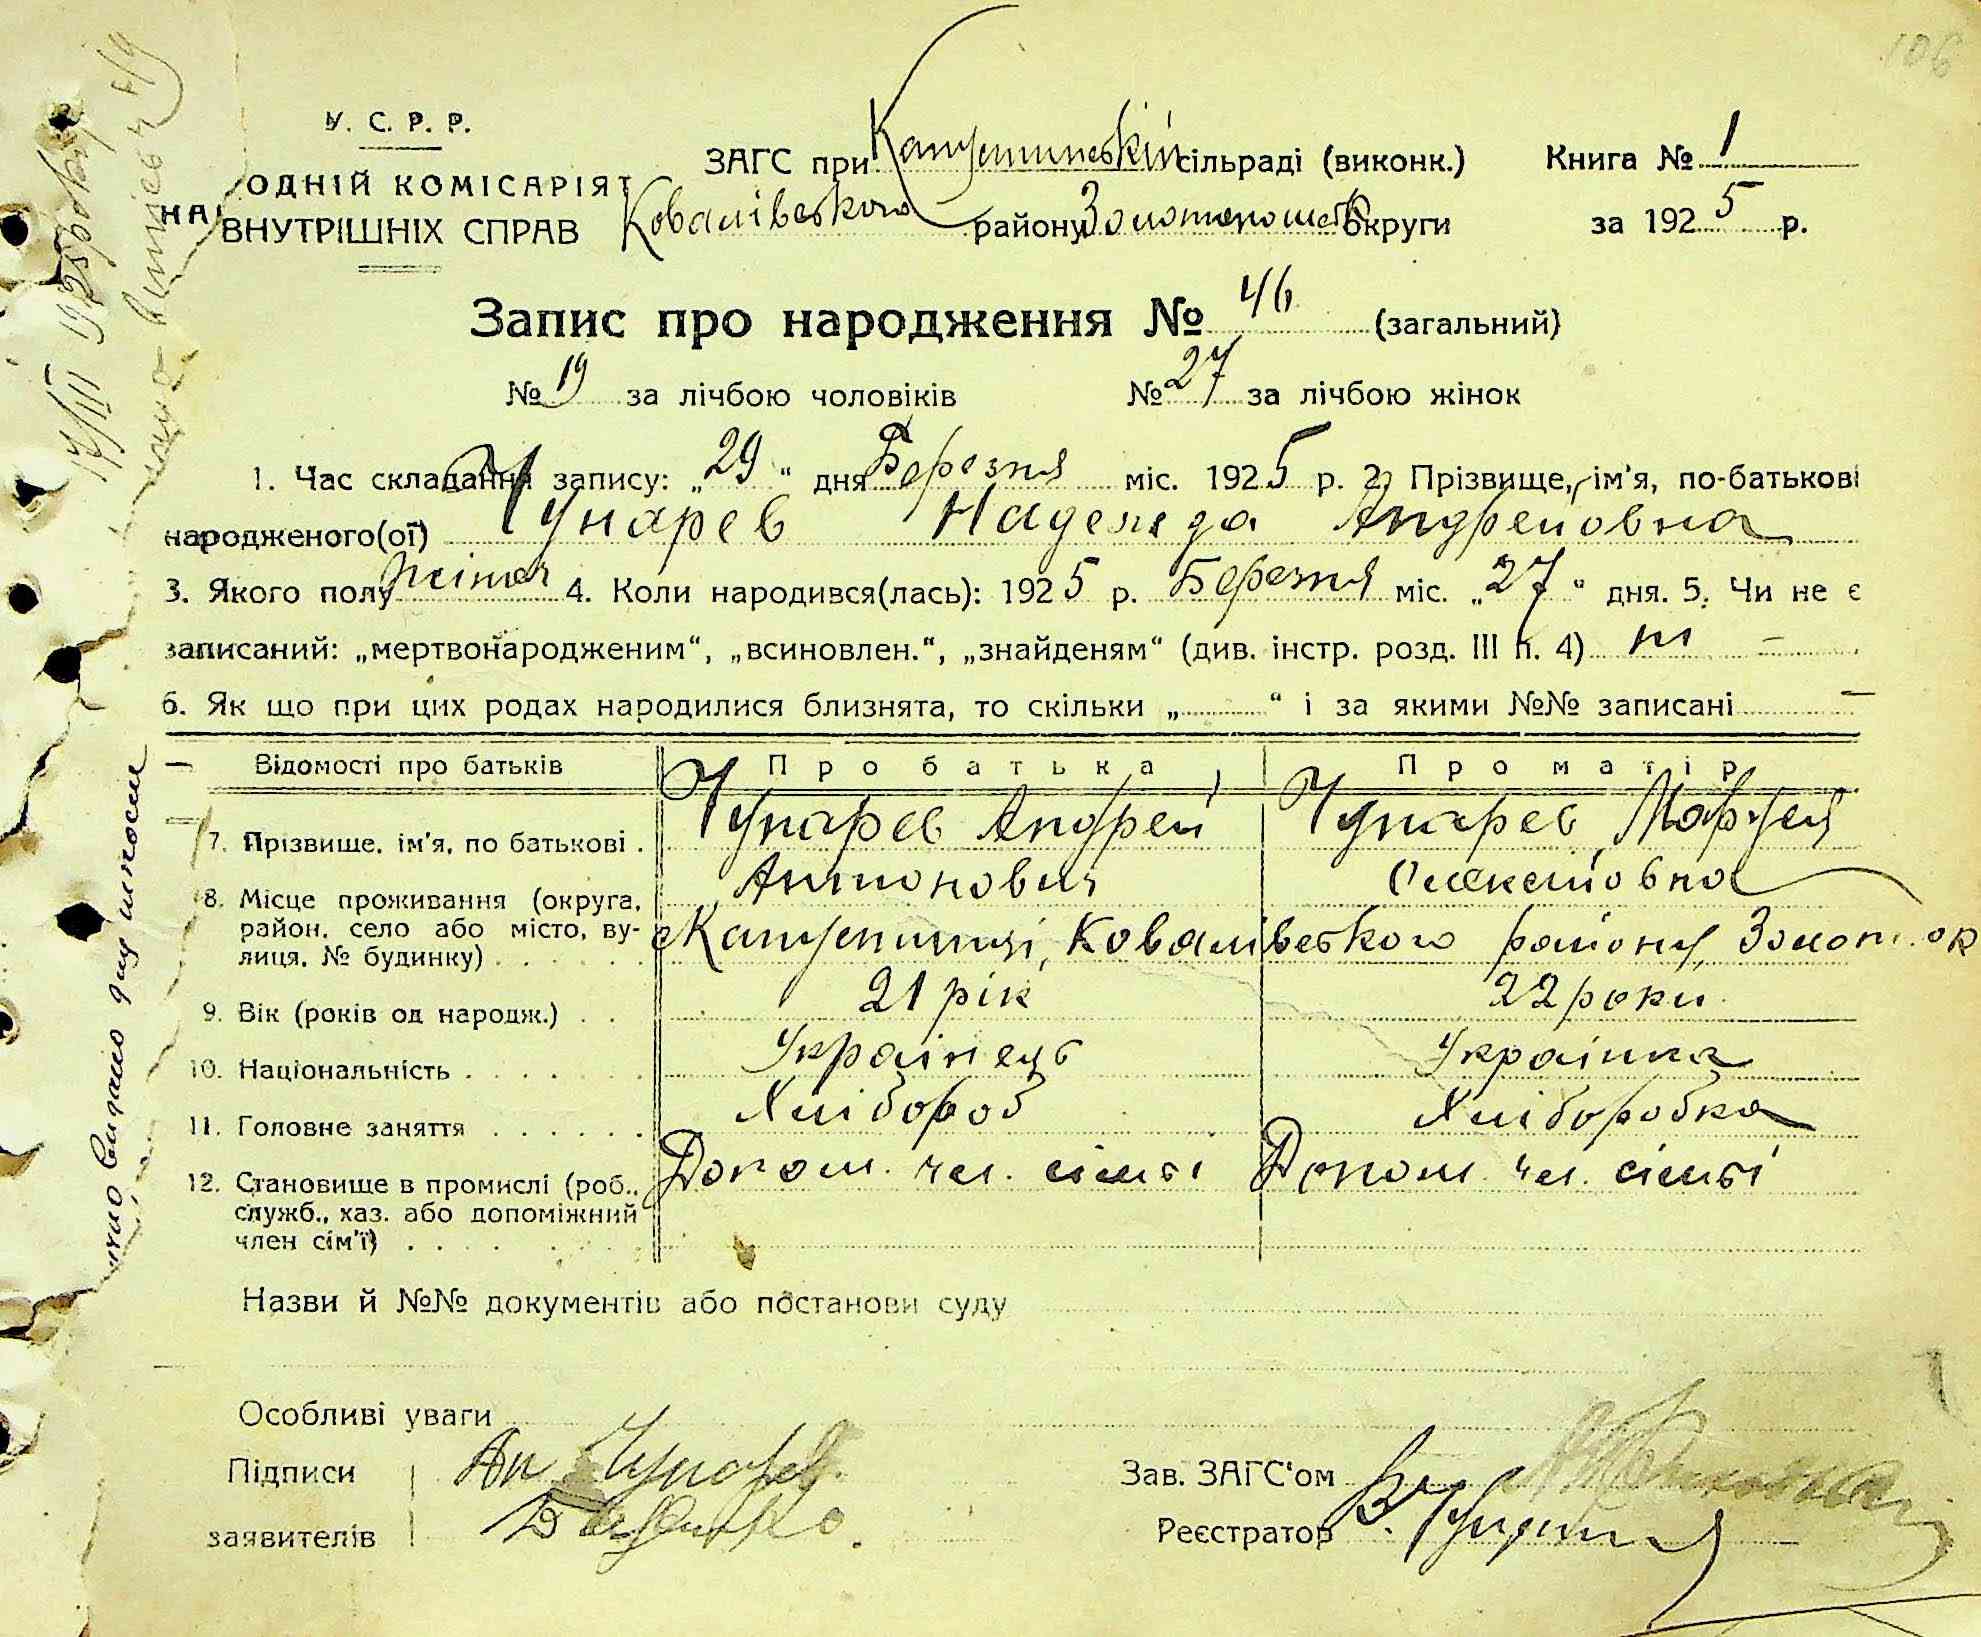 106
У. С. Р. Р.
НАРОДНІЙ КОМІСАРІЯТ
ВНУТРІШНІХ СПРАВ
ЗАГС при Капустинській сільраді (виконк.) Книга № 1
Ковалівського району Золотоношськ округи за 1925 р.
Запис про народження № 46 (загальний)
№ 19 за лічбою чоловіків № 27 за лічбою жінок
1. Час складання запису: „29“ дня Березня міс. 1925 р. 2. Прізвище, ім'я, по-батькові
народженого(ої) Чунарев Надежда Андрейовна
3. Якого полу жіноч 4. Коли народився(лась): 1925 р. Березня міс. „27“ дня. 5. Чи не є
записаний: „мертвонародженим“, „всиновлен.“, „знайденям“ (див. інстр. розд. III п. 4) ні –
6. Як що при цих родах народилися близнята, то скільки „ “ і за якими №№ записані –
Відомості про батьків Про батька Про матір
7. Прізвище, ім'я, по батькові . Чунарев Андрей Антонович Чунарев Марфея Олексійовна
8. Місце проживання (округа, район, село або місто, вулиця, № будинку) . . . Капустинці, Ковалівського району, Золот. ок
9. Вік (років од народж.) . . 21 рік 22 роки
10. Національність . . . . . Українець Українка
11. Головне заняття . . . . . Хлібороб Хліборобка
12. Становище в промислі (роб., служб., хаз. або допоміжний член сім'ї) . . . Допом. чл. сімьі Допом. чл. сімьі
Назви й №№ документів або постанови суду
Особливі уваги
Підписи Ан Чунарев
заявителів
Зав. ЗАГС'ом
Реєстратор
17/III 1925 року
видано